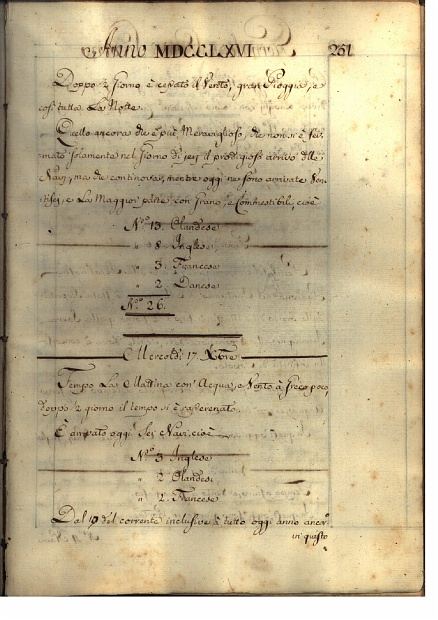 Anno MDCCLXVI 251
Doppo 2. Giorno è cessato il Vento, gran Pioggia, e
così tutta La Notte.
Quello ancora che è più Meraviglioso, che non si è fer=
mato solamente nel Giorno di jeri il prodigioso arrivo delle
Navi, ma che continova, mentre oggi ne sono arrivate Ven=
tisei, e La Maggior parte con Grano, e Comestibili, cioè
N.º 13. Olandese
" 8. Inglese
" 3. Francese
" 2. Danese
N.º 26.
Mercoldì 17. Xbre
Tempo La Mattina con Acqua, e Vento à Greco poco,
doppo 2. giorno il tempo si è raserenato.
È arrivato oggi Sei Navi, cioè
N.º 3 Inglese
" 2 Olandesi
" 1. Francese
Dal del corrente inclusive à tutto oggi anno ancor.
vi questo